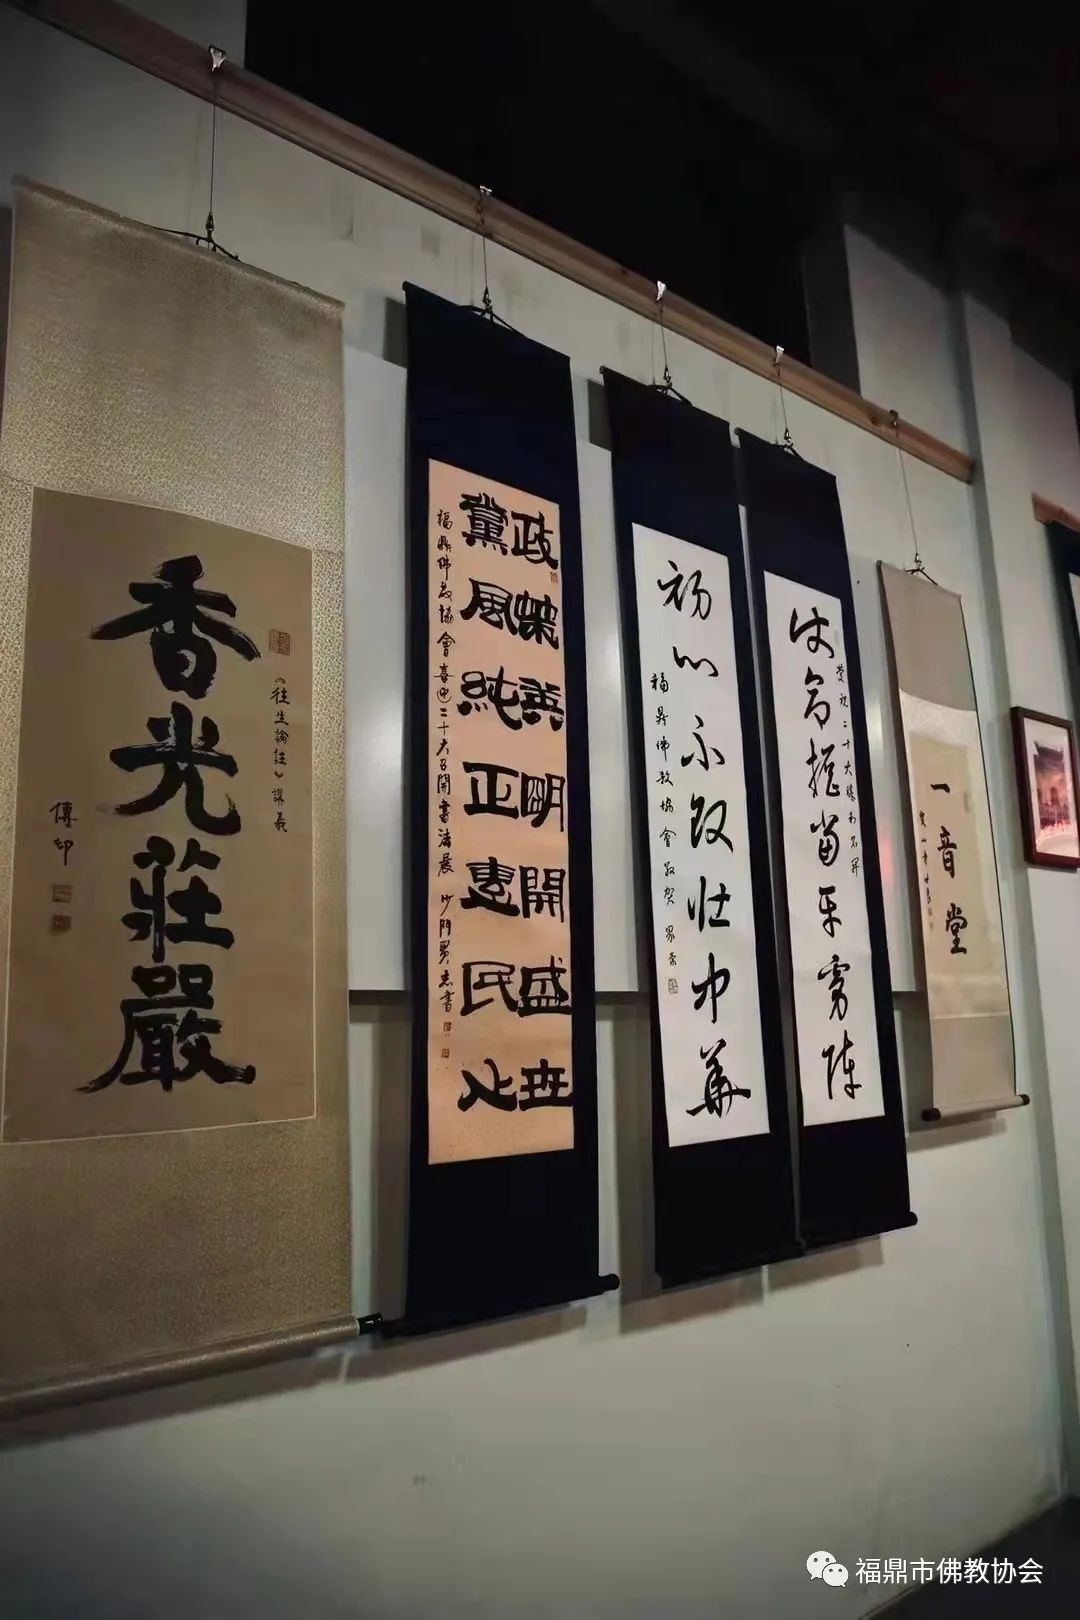 香光莊嚴
《往生論註》講義
傳印
政策英明開盛世
黨風純正惠民心
福鼎佛教協會喜迎二十大召開書法展 沙門賢志書
初心不改壮中華
福鼎佛教協會敬賀
使命担當
慶祝二十大勝利召開
一音堂
福鼎市佛教协会